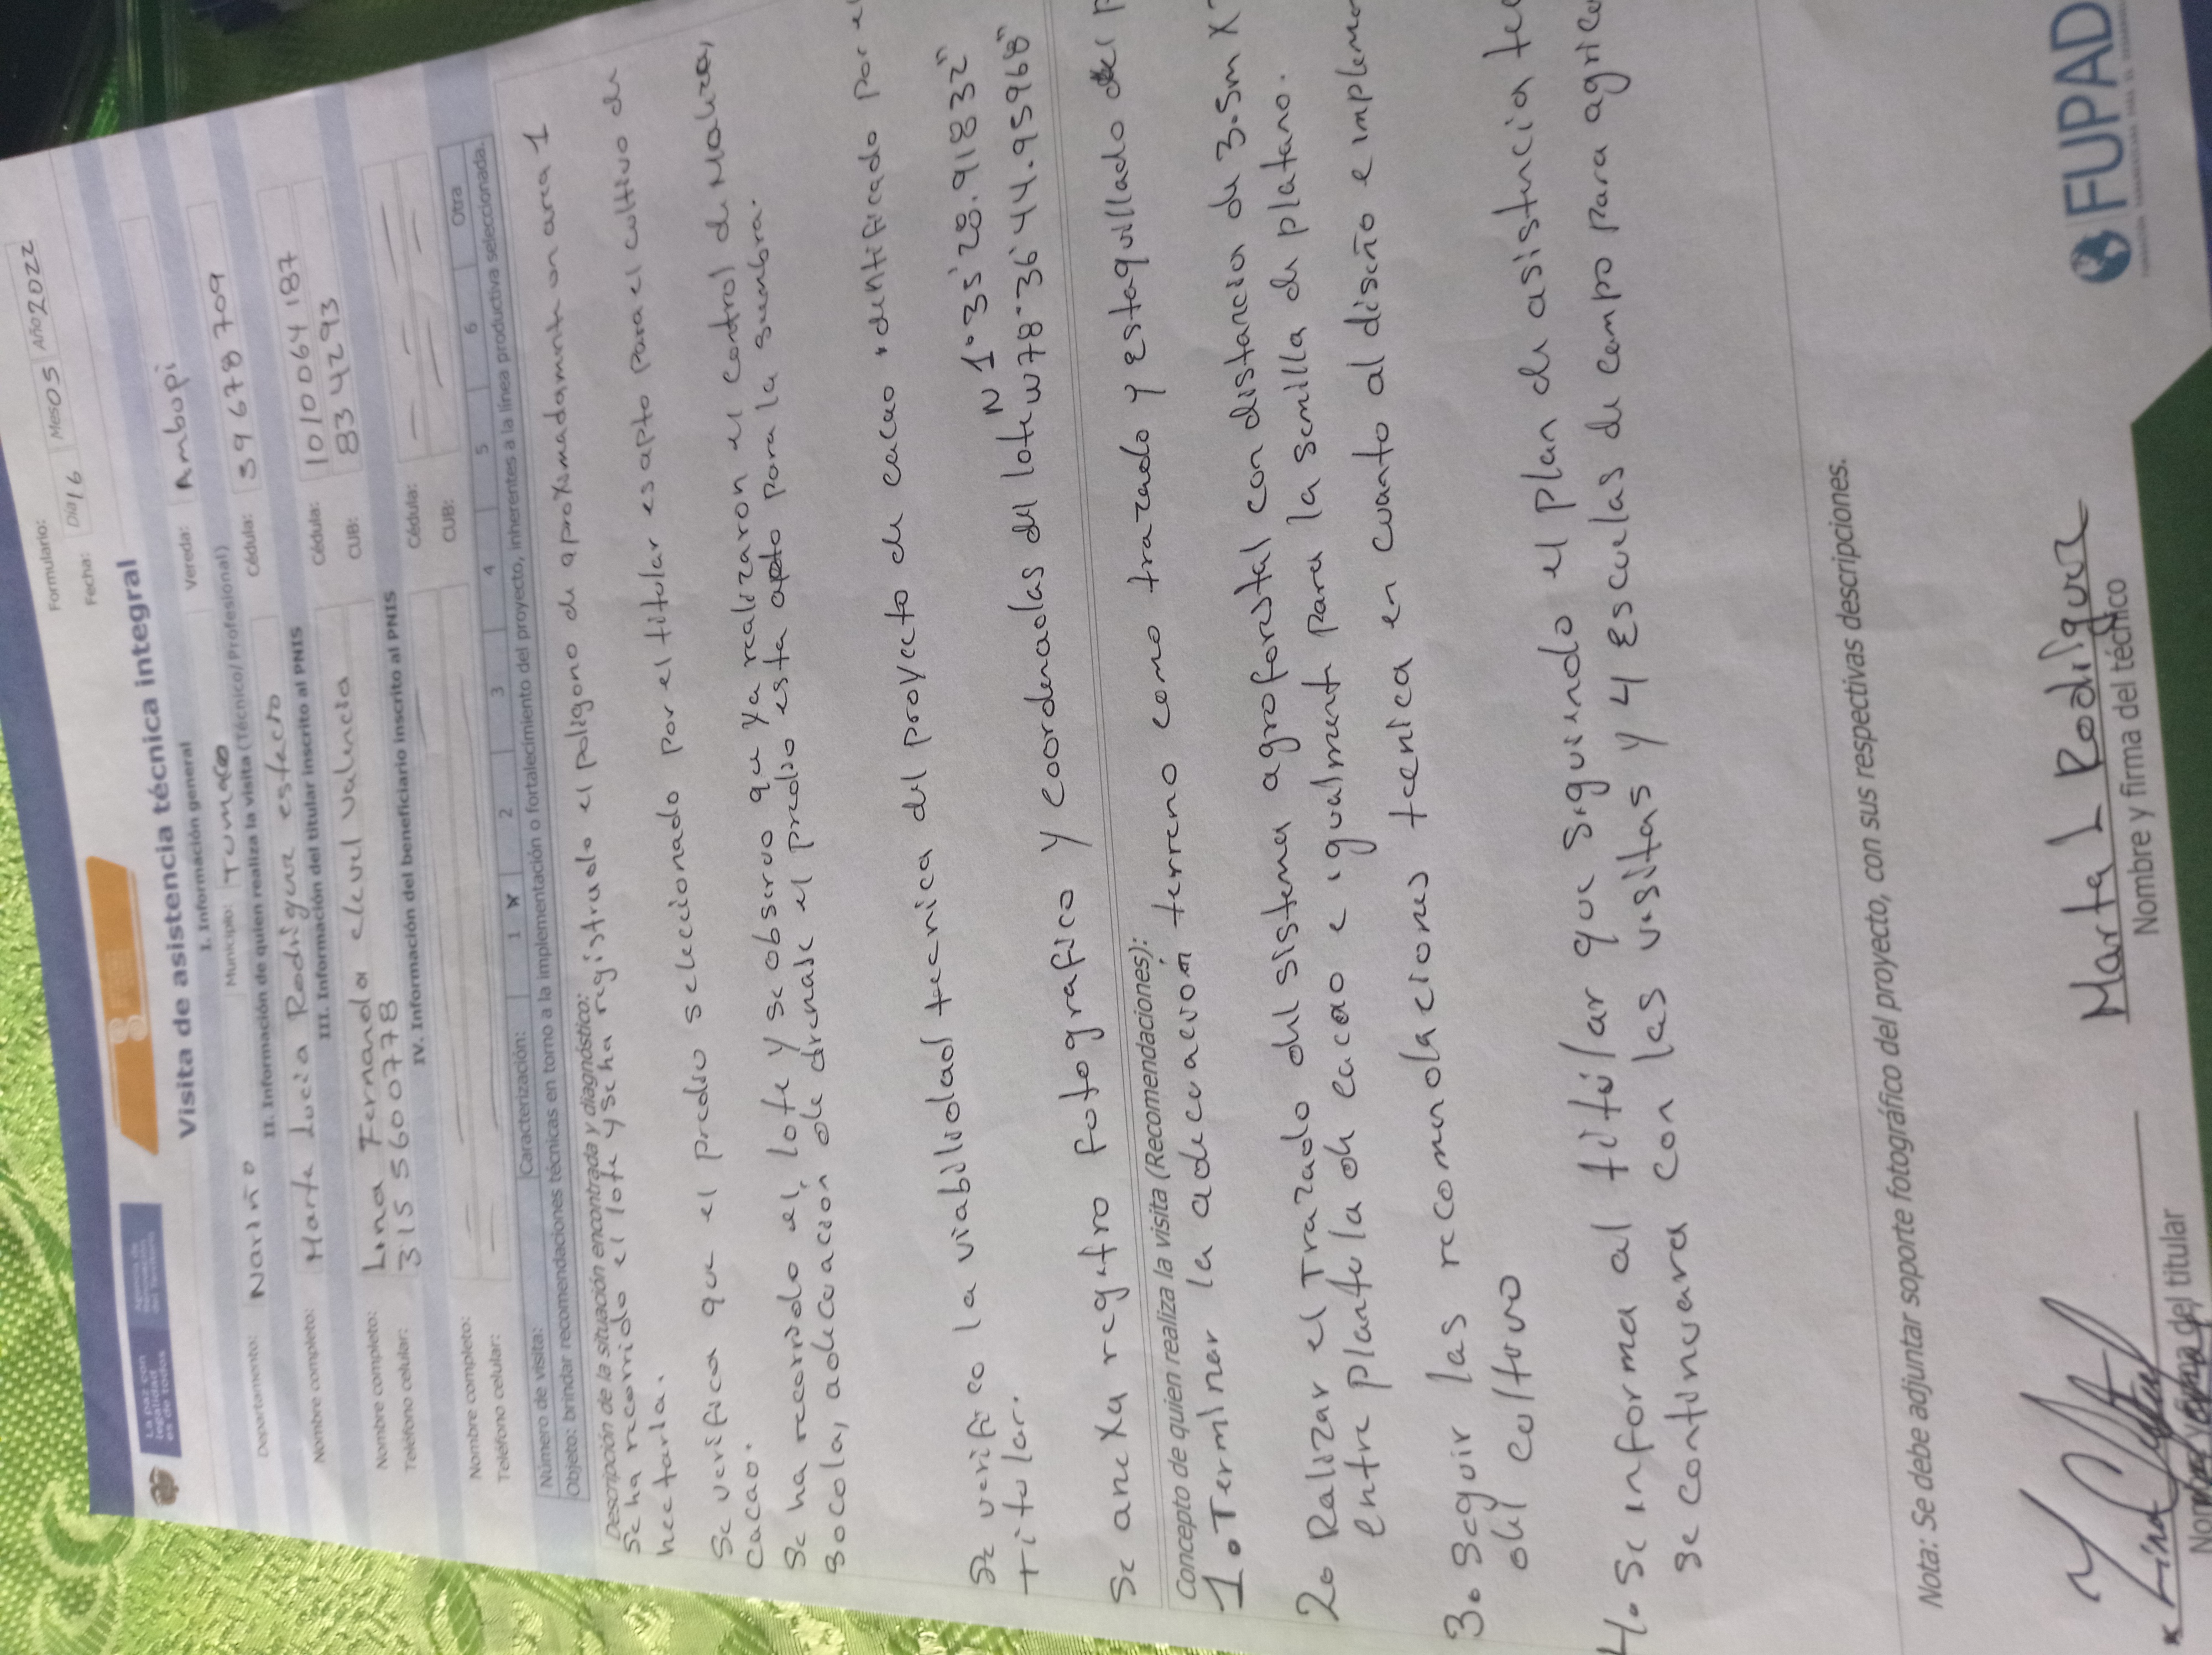 La paz con
legalidad
es de todos
Formulario:
Fecha: Día 16 Mes 05 Año 2022
Visita de asistencia técnica integral
I. Información general
Departamento: Nariño Municipio: Tumaco Vereda: Ambupi
II. Información de quien realiza la visita (Técnico/Profesional)
Nombre completo: Marta Lucia Rodrigue estacio Cédula: 39678709
III. Información del titular inscrito al PNIS
Nombre completo: Lina Fernanda clevel Valencia Cédula: 1010064187
Teléfono celular: 3155600778 CUB: 834293
IV. Información del beneficiario inscrito al PNIS
Nombre completo: Cédula:
Teléfono celular: CUB:
Número de visita: Caracterización: 1 X 2 3 4 5 6 Otra
Objeto: brindar recomendaciones técnicas en torno a la implementación o fortalecimiento del proyecto, inherentes a la línea productiva seleccionada.
Descripción de la situación encontrada y diagnóstico:
Se ha recorrido el lote y se ha registrado el poligono de aproximadamente un area 1
hectaria.
Se verifica que el predio seleccionado por el titular es apto para el cultivo de
cacao.
Se ha recorrido el lote y se observo que ya realizaron el control de Maleza,
socola, adecuacion de drenase el predio esta apto para la siembra.
Se verifico la viabilidad tecnica del proyecto de cacao identificado por el
titular.
N 1°35'28.91832"
Se anexa regitro fotografico y coordenadas del lote w78°36'44.95968"
Concepto de quien realiza la visita (Recomendaciones):
1. Terminar la adecuación terreno como trazado y estaquillado del
2. Realizar el Trazado del sistema agroforestal con distancia de 3.5m X
entre plantula de cacao e igualmente para la semilla de platano.
3. Seguir las recomendaciones tecnica en cuanto al diseño e
del cultivo
4. Se informa al titular que siguiendo el plan de asistencia
se continuara con las visitas y 4 Escuelas de campo para
Nota: Se debe adjuntar soporte fotográfico del proyecto, con sus respectivas descripciones.
Marta L Rodrigue
Nombre y firma del titular
Nombre y firma del técnico
FUPAD